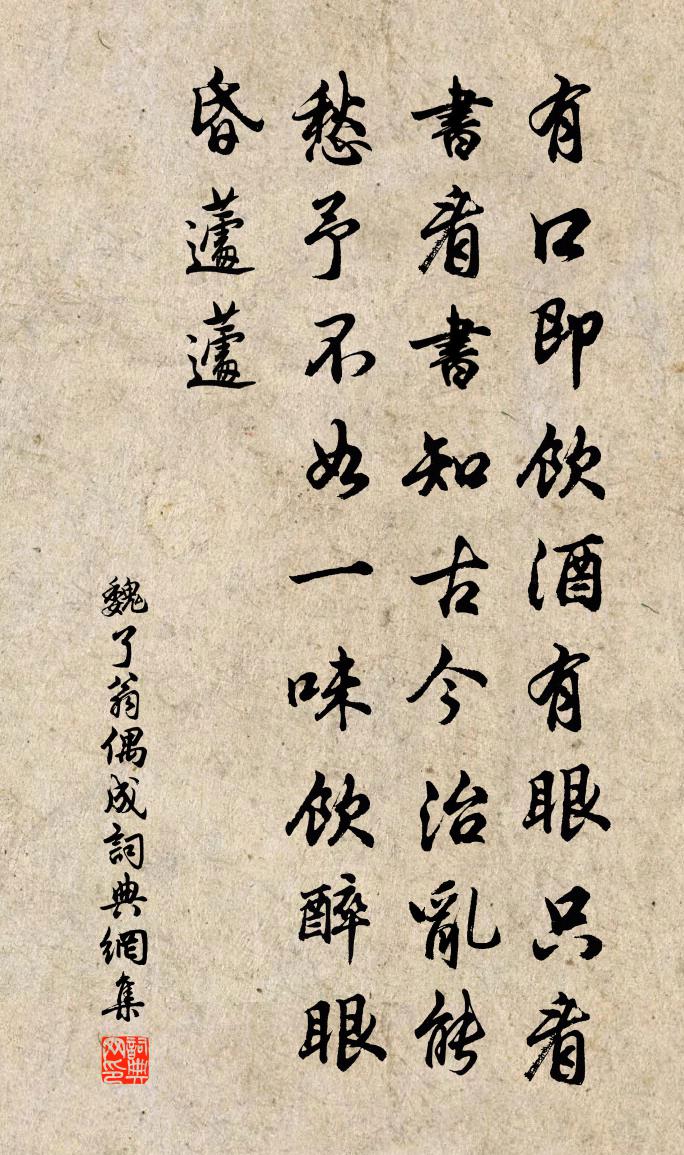 有口即飲酒有眼只看
書看書知古今治亂能
愁予不如一味飲醉眼
昏蘧蘧
魏了翁偶成詞典網集
詞典网印